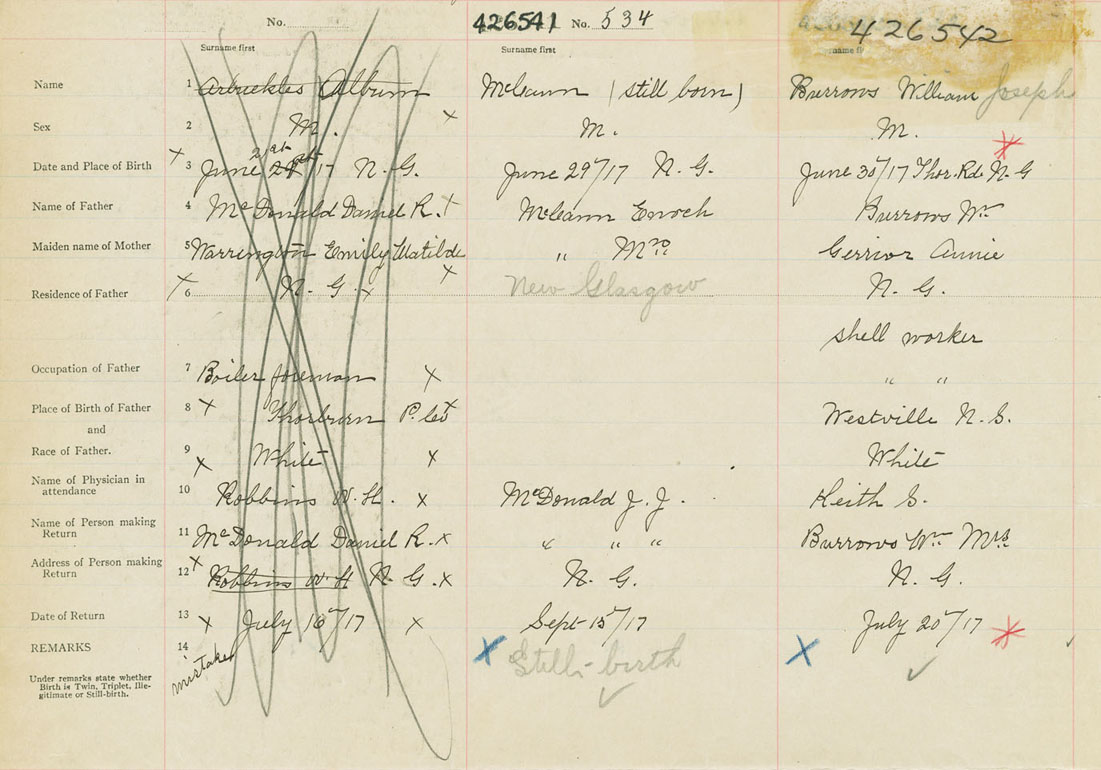 No.
426541 No. 534
426542
Surname first
Surname first
Name 1 Arbuckles Album
McLeann (still born)
Burrows William Joseph
Sex 2 M.
M.
M.
Date and Place of Birth 3 June 29th/17 N. G.
June 29/17 N. G.
June 30/17 Thor. Rd. N. G
Name of Father 4 McDonald Daniel R.
McLeann Enoch
Burrows Wm
Maiden name of Mother 5 Warrington Emily Matilde
" Mrs
Gerrior Annie
Residence of Father 6 N. G.
New Glasgow
N. G.
shell worker
Occupation of Father 7 Boiler foreman
" "
Place of Birth of Father 8 Thorburn P. Co
Westville N. S.
and
Race of Father. 9 White
White
Name of Physician in
attendance 10 Robbins W. H.
McDonald J. J.
Keith S.
Name of Person making
Return 11 McDonald Daniel R.
" " "
Burrows Wm Mrs
Address of Person making
Return 12 Robbins W. H N. G.
N. G.
N. G.
Date of Return 13 July 16/17
Sept 15/17
July 20/17
REMARKS 14 mistake
Still-birth
Under remarks state whether
Birth is Twin, Triplet, Ille-
gitimate or Still-birth.